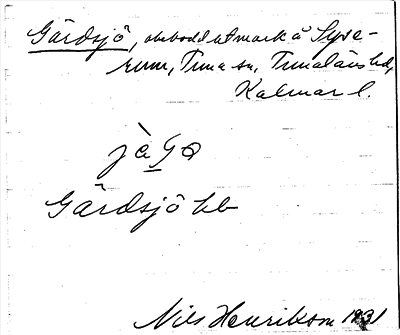 Gårdsjö, obebodd utmark å Syse-
rum, Tuna sn, Tunaläns hd,
Kalmar l.
Gårdsjö bb
Nils Henrikson 1931